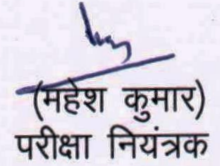 (महेश कुमार)
परीक्षा नियंत्रक